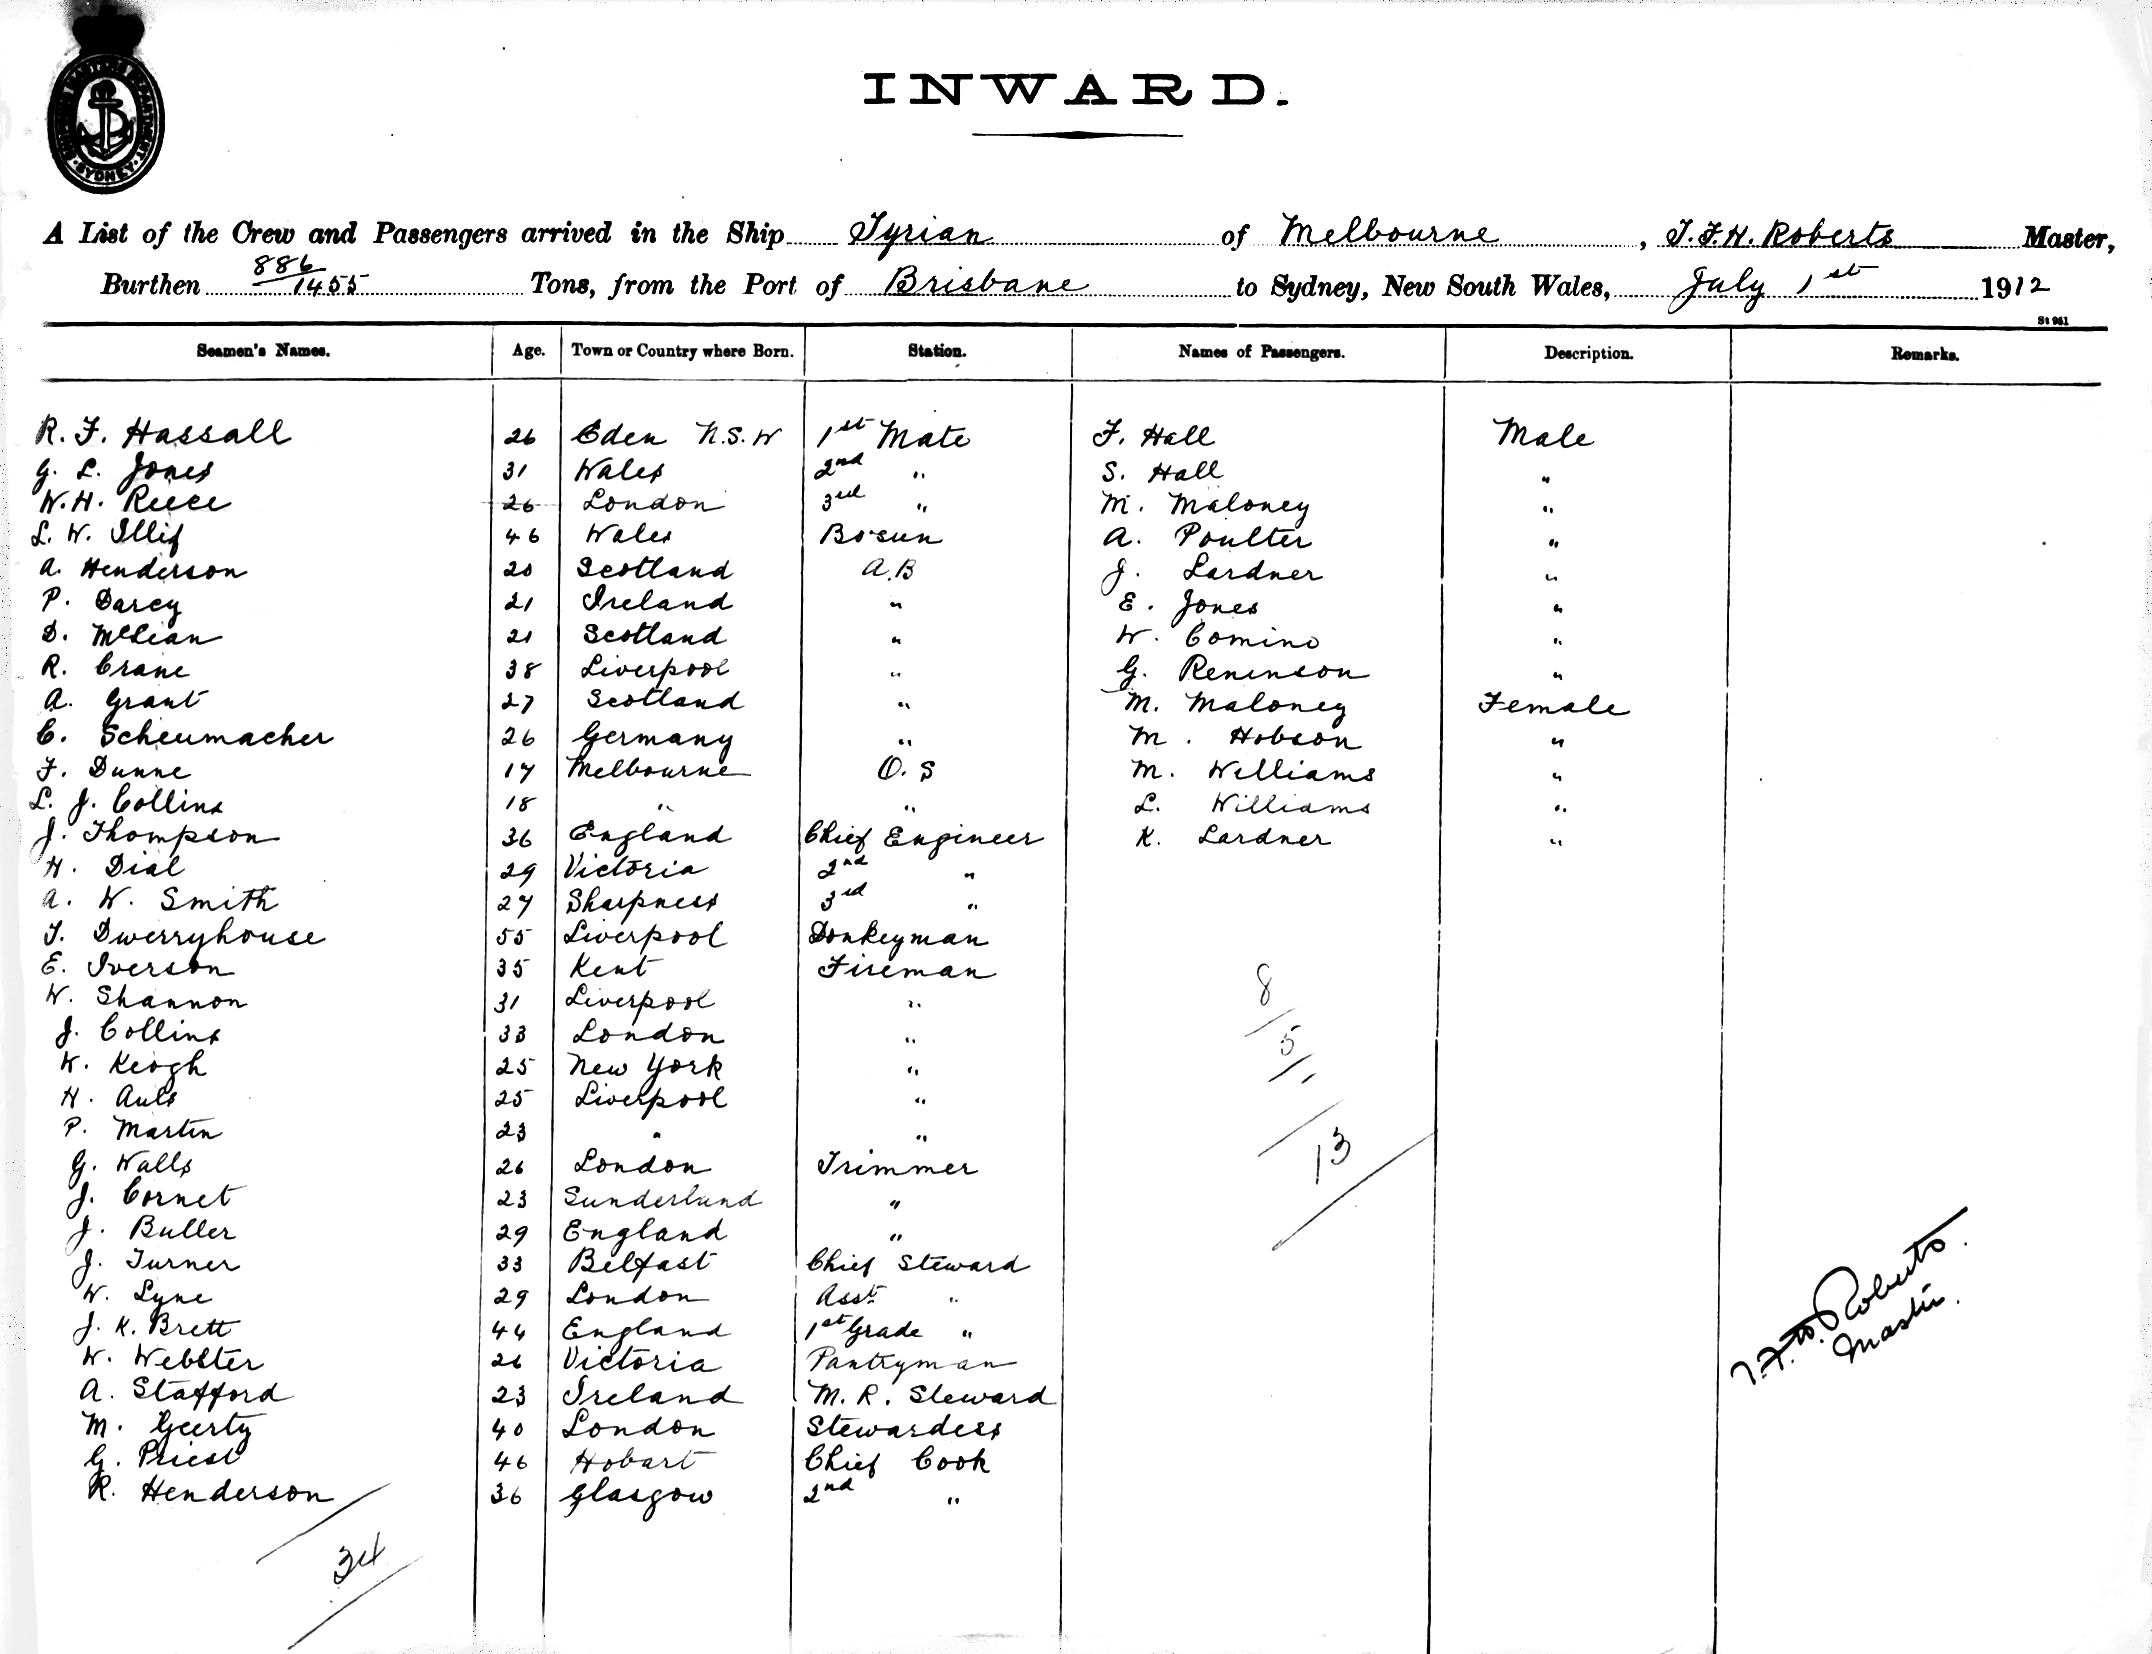 INWARD.
SYDNEY
A List of the Crew and Passengers arrived in the Ship Tyrian of Melbourne, T.F.H. Roberts Master,
Burthen 886/1455 Tons, from the Port of Brisbane to Sydney, New South Wales, July 1st 1912
St 961
Seamen's Names. Age. Town or Country where Born. Station. Names of Passengers. Description. Remarks.
R. F. Hassall 26 Eden N.S.W 1st Mate F. Hall Male
G. L. Jones 31 Wales 2nd " S. Hall "
W.H. Reece 26 London 3rd " M. Maloney "
L. W. Illif 46 Wales Bosun A. Poulter "
A. Henderson 20 Scotland A.B J. Lardner "
P. Darcy 21 Ireland " E. Jones "
D. McLean 21 Scotland " W. Comino "
R. Crane 38 Liverpool " G. Reninson "
A. Grant 27 Scotland " M. Maloney Female
C. Scheumacher 26 Germany " M. Hobson "
F. Dunne 17 Melbourne O.S M. Williams "
L. J. Collins 18 " " L. Williams "
J. Thompson 36 England Chief Engineer K. Lardner "
H. Dial 29 Victoria 2nd "
A. W. Smith 27 Sharpness 3rd "
T. Dwerryhouse 55 Liverpool Donkeyman
E. Iverson 35 Kent Fireman
W. Shannon 31 Liverpool "
J. Collins 33 London "
W. Keogh 25 New York "
H. Auls 25 Liverpool "
P. Martin 23 " "
G. Walls 26 London Trimmer
J. Cornet 23 Sunderland "
J. Buller 29 England "
J. Turner 33 Belfast Chief Steward
W. Lyne 29 London Asst "
J. K. Brett 44 England 1st Grade "
W. Webster 26 Victoria Pantryman
A. Stafford 23 Ireland M. R. Steward
M. Geerty 40 London Stewardess
G. Priest 46 Hobart Chief Cook
R. Henderson 36 Glasgow 2nd "
8
5
13
34
T.F.H. Roberts.
Master.